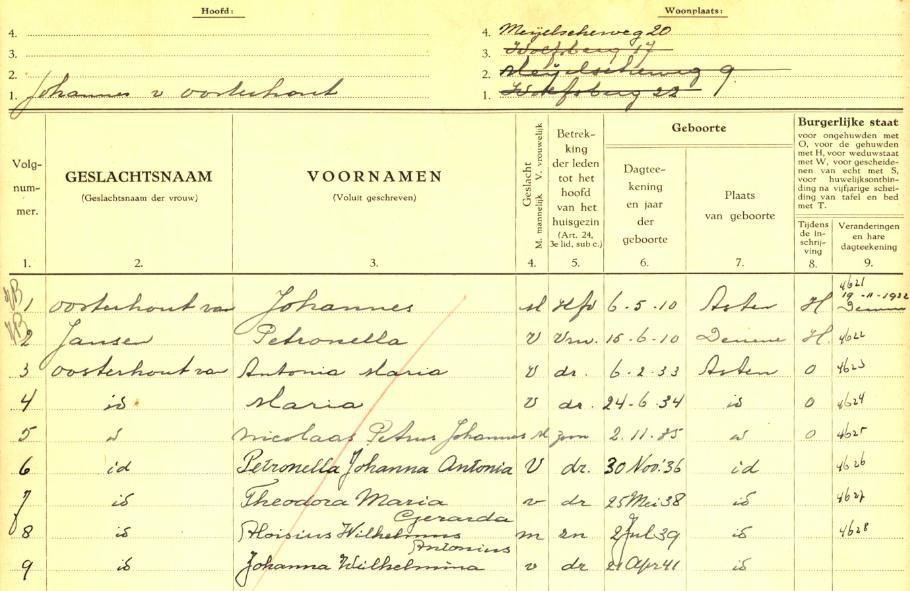 Hoofd:
Woonplaats:
4.
3.
2.
1. Johannes v Oosterhout
4. Meijelscheweg 20
3. Wolfsberg 17
2. Meijelscheweg 9
1. Wolfsberg 22
Volg-
num-
mer.
GESLACHTSNAAM
(Geslachtsnaam der vrouw)
VOORNAMEN
(Voluit geschreven)
Geslacht
M. mannelijk V. vrouwelijk
Betrek-
king
der leden
tot het
hoofd
van het
huisgezin
(Art. 24,
3e lid, sub c.)
Geboorte
Dagtee-
kening
en jaar
der
geboorte
Plaats
van geboorte
Burgerlijke staat
voor ongehuwden met
O, voor de gehuwden
met H, voor weduwstaat
met W, voor gescheide-
nen van echt met S,
voor huwelijksontbin-
ding na vijfjarige schei-
ding van tafel en bed
met T.
Tijdens
de in-
schrij-
ving
Veranderingen
en hare
dagteekening
1. 2. 3. 4. 5. 6. 7. 8. 9.
VB
1 Oosterhout van Johannes M Hfd 6-5-10 Asten H 4621 19-11-1932
VB
2 Jansen Petronella V Vrw. 15-6-10 Deurne H. 4622
3 Oosterhout van Antonia Maria V dr. 6-2-33 Asten O 4623
4 id Maria V dr. 24-6-34 id O 4624
5 id Nicolaas Petrus Johannes M zoon 2.11.35 id O 4625
6 id Petronella Johanna Antonia V dr. 30 Nov. '36 id 4626
7 id Theodora Maria Gerarda v dr 25 Mei 38 id 4627
8 id Aloisius Wilhelmus Antonius m zn 2 Jul. 39 id 4628
9 id Johanna Wilhelmina v dr 21 Apr 41 id